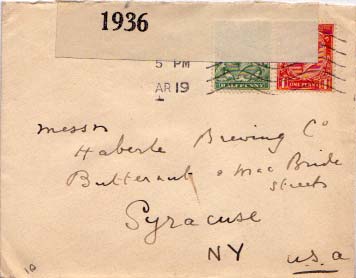 1936
5 PM
AR 19
HALFPENNY
ONE PENNY
Messrs
Haberle Brewing Co
Butternut & Mac Bride
Streets
Syracuse
NY U.S.A
10